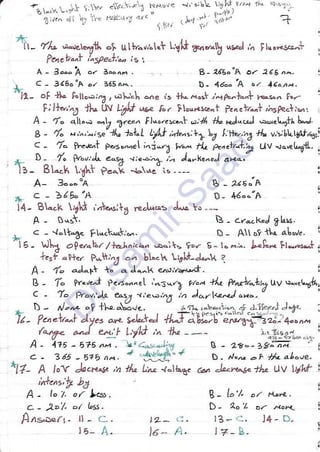 * Black Light Filter effectively remove visible light from the energy
given off by the mercury arc
Filter (dep. ant. purple)
7
* 11- The wavelength of ultraviolet Light generally used in Fluorescent
Penetrant inspection is:
A- 3000 A° or 300nm. B- 2650 °A or 265 nm.
C- 3650 °A or 365 nm. D- 4600 °A or 460nm.
* 12- of the Following, which one is the most important reason For
Filtering the UV Light use For Flourescent Penetrant inspection:
A- To allow only green Flourescent with the reduced wavelength band
B- To minimise the total light intensity by Filtering the visible light rays
C- To Prevent Personnel injury From the Penetrating UV wavelength.
D- To Provide easy viewing in darkened area.
* 13- Black Light Peak value is ----
A- 3000 °A B- 2650 °A
C- 3650 °A D- 4600 °A
14- Black light intensity reduces due to ----
A- Dust. B- Cracked glass.
C- Voltage Fluctuation. D- All of the above.
* 15- Why operator / technician waits For 5-10 min. before Flourescent
test after Putting on black light dark ?
A- To adapt to a dark enviroment.
B- To Prevent Personnel injury From the Penetrating UV wavelength
C- To Provide easy viewing in darkened area.
D- None of the above.
* 16- Penetrant dyes are selected that absorb energy 320-400nm
range and emit light in the ----
A- 475 - 575 nm. * Cascading B- 280 - 380 nm
C- 365 - 575 nm. D- None of the above.
* 17- A low decrease in the Line Voltage can decrease the UV light
intensity by
A- 10% or less. B- 10% or more.
C- 20% or less. D- 20% or more.
Answer:- 11- C. 12- C. 13- C. 14- D.
15- A. 16- A. 17- B.